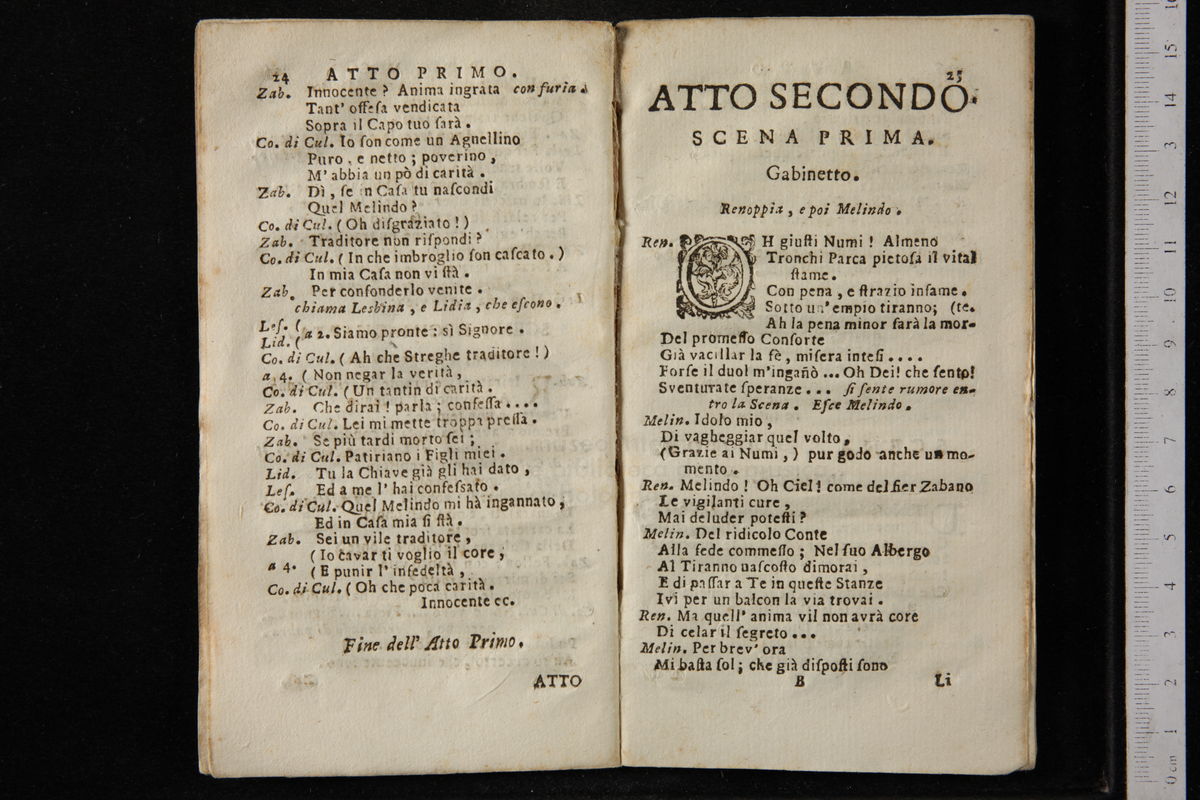 24 ATTO PRIMO.
Zab. Innocente? Anima ingrata con furia.
Tant' offeſa vendicata
Sopra il Capo tuo ſarà.
Co. di Cul. Io ſon come un Agnellino
Puro, e netto; poverino,
M' abbia un pò di carità.
Zab. Dì, ſe in Caſa tu naſcondi
Quel Melindo?
Co. di Cul. (Oh diſgraziato!)
Zab. Traditore non riſpondi?
Co. di Cul. (In che imbroglio ſon caſcato.)
In mia Caſa non vi ſtà.
Zab. Per confonderlo venite.
chiama Lesbina, e Lidia, che eſcono.
Leſ. (
Lid. ( a 2. Siamo pronte: sì Signore.
Co. di Cul. (Ah che Streghe traditore!)
a 4. (Non negar la verità,
Co. di Cul. (Un tantin di carità.
Zab. Che dirai! parla; confeſſa....
Co. di Cul. Lei mi mette troppa preſſa.
Zab. Se più tardi morto ſei;
Co. di Cul. Patiriano i Figli miei.
Lid. Tu la Chiave già gli hai dato,
Leſ. Ed a me l' hai confeſsato.
Co. di Cul. Quel Melindo mi hà ingannato,
Ed in Caſa mia ſi ſtà.
Zab. Sei un vile traditore,
(Io cavar ti voglio il core,
a 4. (E punir l' infedeltà,
Co. di Cul. (Oh che poca carità.
Innocente ec.
Fine dell' Atto Primo.
ATTO
25
ATTO SECONDO.
SCENA PRIMA.
Gabinetto.
Renoppia, e poi Melindo.
Ren. OH giuſti Numi! Almeno
Tronchi Parca pietoſa il vital
ſtame.
Con pena, e ſtrazio infame.
Sotto un' empio tiranno; (te.
Ah la pena minor ſarà la mor-
Del promeſſo Conſorte
Già vacillar la fè, miſera inteſi....
Forſe il duol m'ingañò ... Oh Dei! che ſento!
Sventurate ſperanze... ſi ſente rumore en-
tro la Scena. Eſce Melindo.
Melin. Idolo mio,
Di vagheggiar quel volto,
(Grazie ai Numi,) pur godo anche un mo-
mento.
Ren. Melindo! Oh Ciel! come del fier Zabano
Le vigilanti cure,
Mai deluder poteſti?
Melin. Del ridicolo Conte
Alla fede commeſſo; Nel ſuo Albergo
Al Tiranno naſcoſto dimorai,
E di paſſar a Te in queſte Stanze
Ivi per un balcon la via trovai.
Ren. Ma quell' anima vil non avrà core
Di celar il ſegreto...
Melin. Per brev' ora
Mi baſta ſol; che già diſpoſti ſono
B Li
0 cm 1 2 3 4 5 6 7 8 9 10 11 12 13 14 15 16